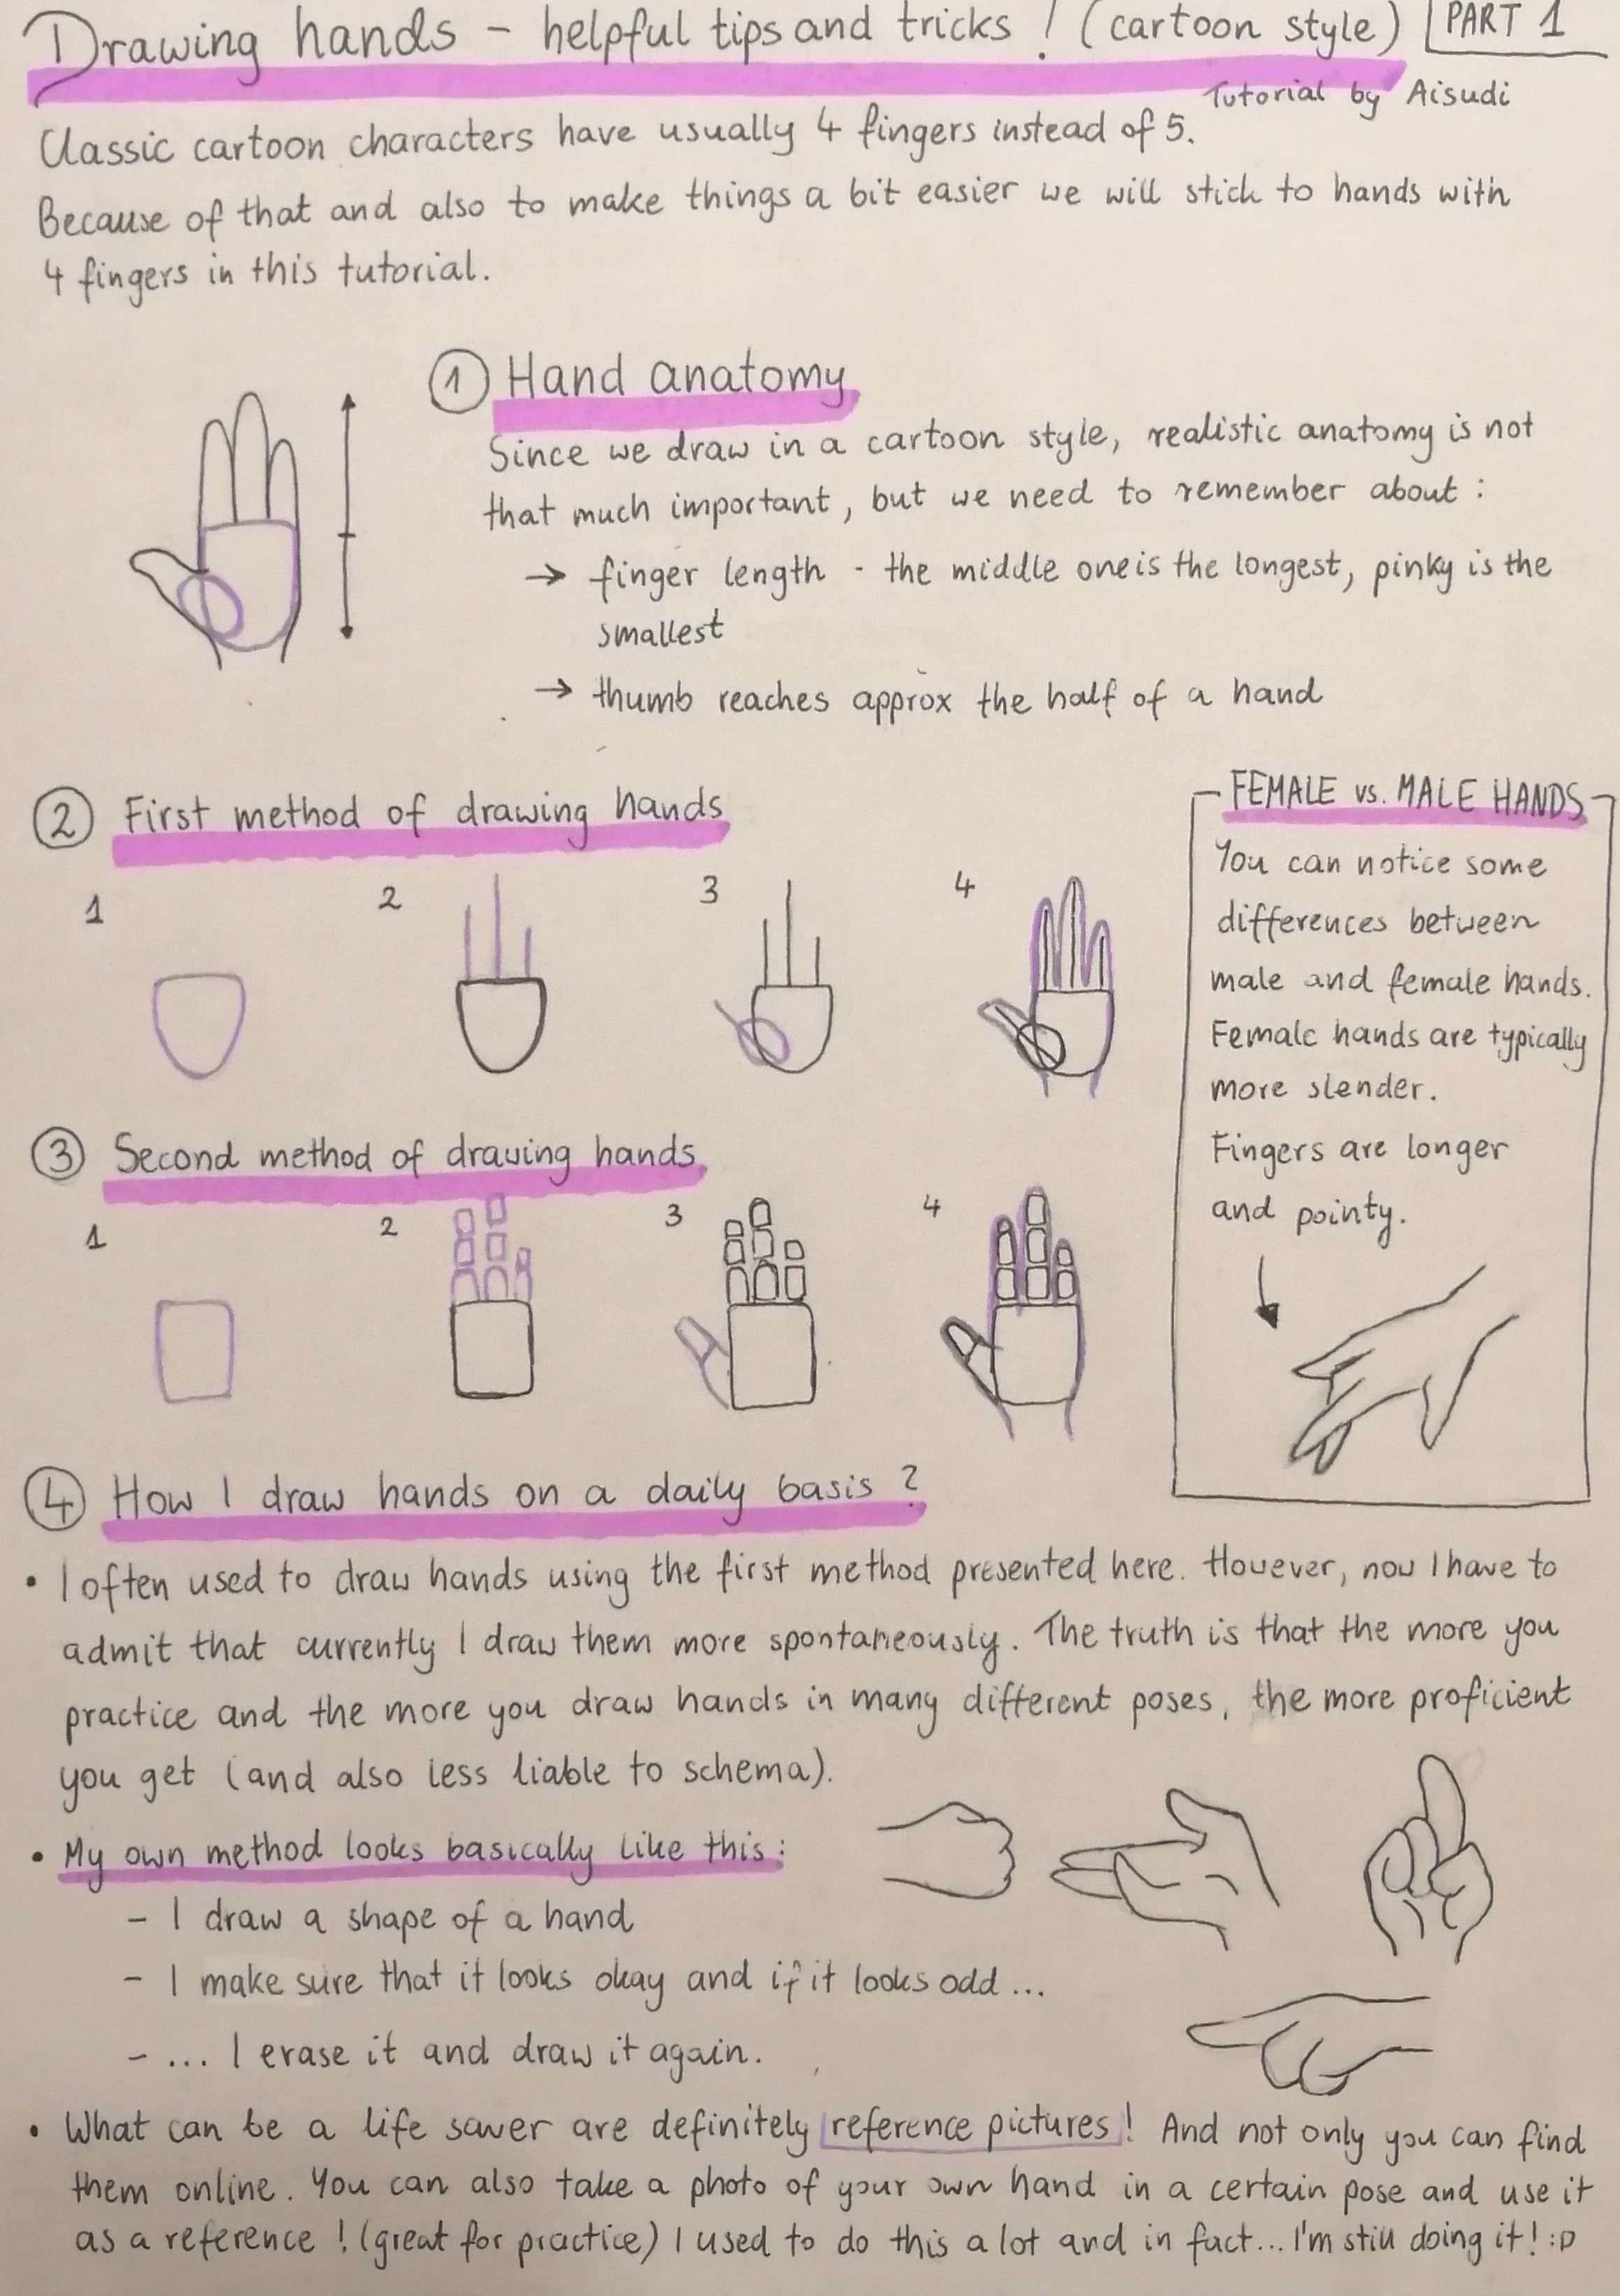 Drawing hands - helpful tips and tricks! (cartoon style) PART 1
Tutorial by Aisudi
Classic cartoon characters have usually 4 fingers instead of 5.
Because of that and also to make things a bit easier we will stick to hands with
4 fingers in this tutorial.
1 Hand anatomy
Since we draw in a cartoon style, realistic anatomy is not
that much important, but we need to remember about:
→ finger length - the middle one is the longest, pinky is the
smallest
→ thumb reaches approx the half of a hand
2 First method of drawing hands
1 2 3 4
3 Second method of drawing hands
1 2 3 4
FEMALE vs. MALE HANDS
You can notice some
differences between
male and female hands.
Female hands are typically
more slender.
Fingers are longer
and pointy.
4 How I draw hands on a daily basis?
• I often used to draw hands using the first method presented here. However, now I have to
admit that currently I draw them more spontaneously. The truth is that the more you
practice and the more you draw hands in many different poses, the more proficient
you get (and also less liable to schema).
• My own method looks basically like this:
- I draw a shape of a hand
- I make sure that it looks okay and if it looks odd...
- ... I erase it and draw it again.
• What can be a life saver are definitely reference pictures! And not only you can find
them online. You can also take a photo of your own hand in a certain pose and use it
as a reference! (great for practice) I used to do this a lot and in fact... I'm still doing it! :D